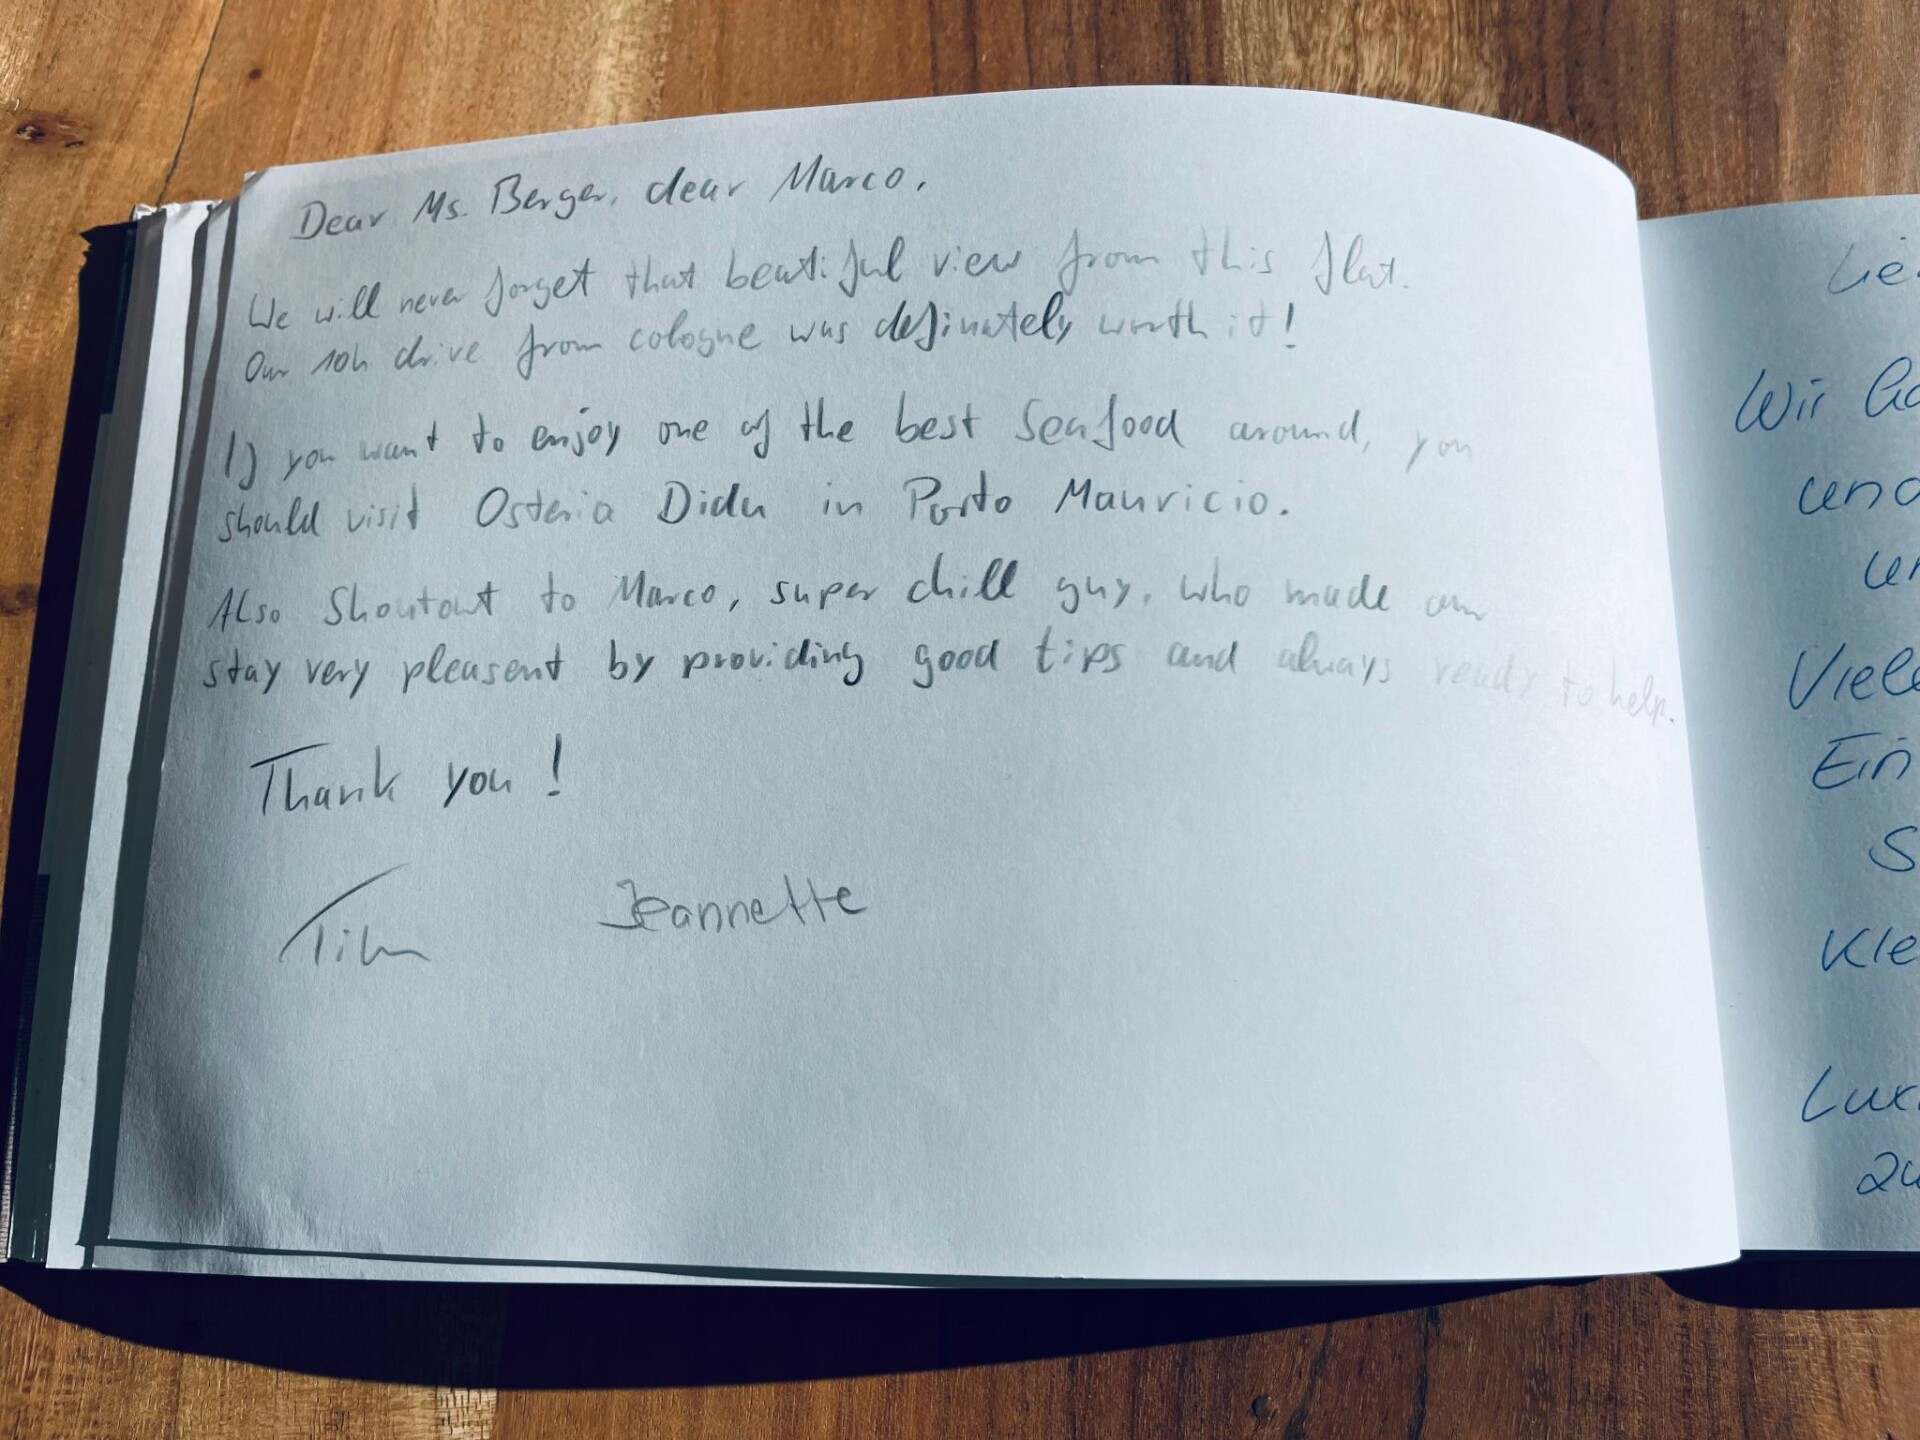 Dear Ms. Berger, dear Marco,
We will never forget that beatiful view from this flat.
Our 10h drive from cologne was definately worth it!
If you want to enjoy one of the best Seafood around, you
should visit Osteria Didu in Porto Mauricio.
Also Shoutout to Marco, super chill guy, who made our
stay very pleasent by providing good tips and always ready to help.
Thank you!
Jeannette
Wir
Viele
Ein